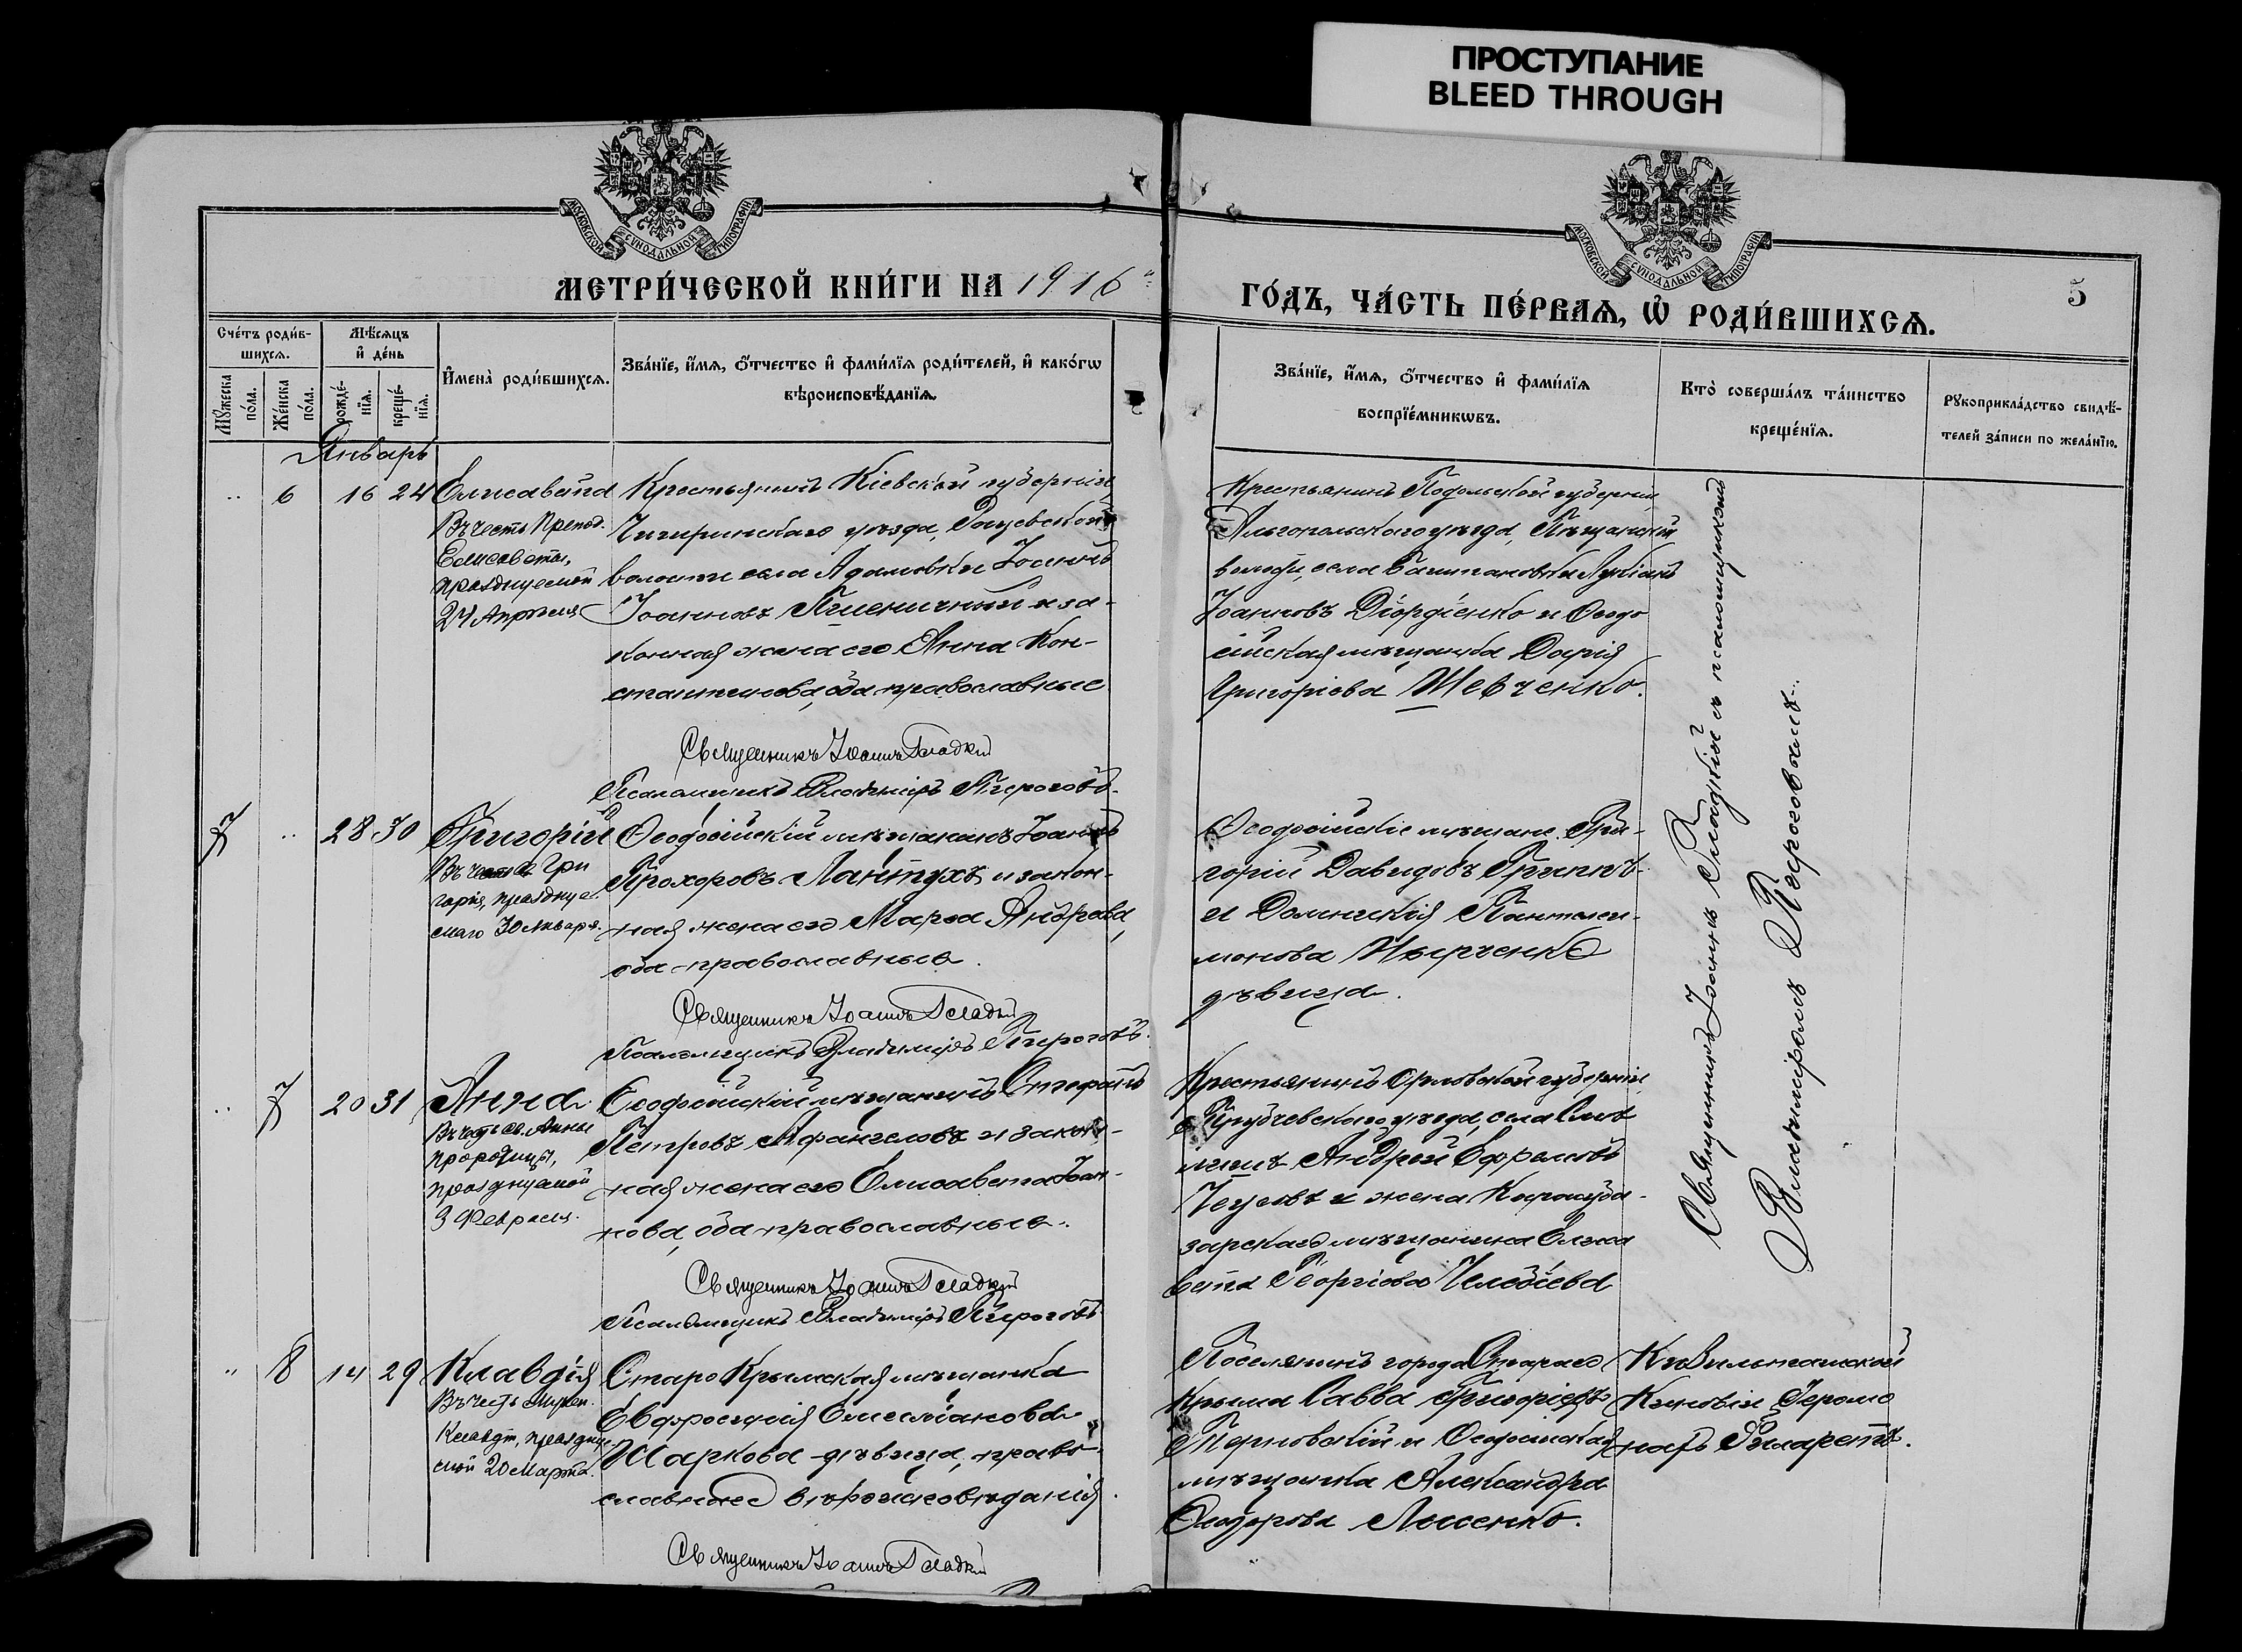 ПРОСТУПАНИЕ
BLEED THROUGH
МОСКОВСКОЙ СѴНОДАЛЬНОЙ ТИПОГРАФІИ
МОСКОВСКОЙ СѴНОДАЛЬНОЙ ТИПОГРАФІИ
МЕТРИ́ЧЕСКОЙ КНИ́ГИ НА 1916
ГО́ДЪ, ЧА́СТЬ ПЕ́РВАѦ, Ѡ҆ РОДИ́ВШИХСѦ.
5
Сче́тъ роди́в-
шихсѧ.
Мѣ́сѧцъ
и҆ де́нь
Мꙋ́жеска
по́ла.
Же́нска
по́ла.
рожде́-
нїѧ.
креще́-
нїѧ.
И҆мена̀ роди́вшихсѧ.
Зва́нїе, и҆́мѧ, ѻ҆́тчество и҆ фами́лїѧ роди́телей, и҆ како́гѡ
вѣроисповѣ́данїѧ.
Зва́нїе, и҆́мѧ, ѻ҆́тчество и҆ фами́лїѧ
воспрїе́мникѡвъ.
Кто̀ соверша́лъ та́инство
креще́нїѧ.
Рꙋкоприкла́дство свидѣ́-
телей за́писи по жела́нїю.
Январь
6 16 24 Елисавета
Въ честь Препод.
Елисаветы,
празднуемой
24 Апрѣля
Крестьянинъ Кіевской губерніи
Чигиринскаго уѣзда,
волости села Адамовки Іоаннъ
Іоанновъ Пшеничный и за-
конная жена его Анна Кон-
стантинова, оба православные
Священникъ Іоаннъ Гладкій
Псаломщикъ Владиміръ Пироговъ.
Крестьянинъ Подольской губерніи
Ольгопольскаго уѣзда,
волости, села
Іоанновъ Діордіенко и Ѳеодо
сійская мѣщанка Дарія
Григоріева Шевченко.
7 28 30 Григорій
Въ честь св. Гри
горія, праздну
емаго 30 Января.
Ѳеодосійскій мѣщанинъ Іоаннъ
Прохоровъ Лантухъ и закон-
ная жена его Марѳа
оба православные.
Священникъ Іоаннъ Гладкій
Псаломщикъ Владиміръ Пироговъ.
Ѳеодосійскіе мѣщане Гри-
горій Давидовъ
и Домникія Пантелеи-
монова
дѣвица.
7 20 31 Анна
Въ честь св. Анны
пророчицы,
празднуемой
3 Февраля.
Ѳеодосійскій мѣщанинъ Стефанъ
Петровъ и закон-
ная жена его Елисавета Іоан-
нова, оба православные.
Священникъ Іоаннъ Гладкій
Псаломщикъ Владиміръ Пироговъ
Крестьянинъ Орловской губерніи,
Трубчевскаго уѣзда, села
Андрей Ефремовъ
и жена Карасуба-
зарскаго мѣщанина Елиса
вета Георгіева Челебіева
8 14 29 Клавдія
Въ честь мучен.
Клавдіи, праздну-
емой 20 Марта.
Старо Крымская мѣщанка
Евфросинія Емеліанова
Маркова дѣвица, право-
славнаго вѣроисповѣданія.
Священникъ Іоаннъ Гладкій
Поселянинъ города Стараго
Крыма Савва Григоріевъ
Терновскій и Ѳеодосійская
мѣщанка Александра
Ѳеодорова Лысенко.
Священникъ Іоаннъ Гладкій съ псаломщикомъ
Владиміромъ Пироговымъ.
Киновіи Іеромо
нахъ Филаретъ.